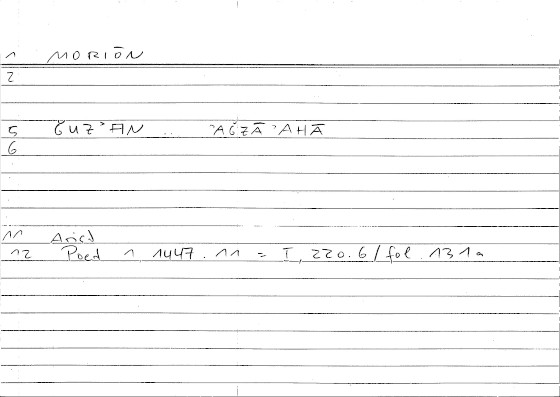 1 MORIŌN
2
5 ĞUZʾAN .. ʾAĞZĀʾAHĀ
6
11 Arist
12 Poet 1, 1447.11 = I, 220.6/fol. 131a